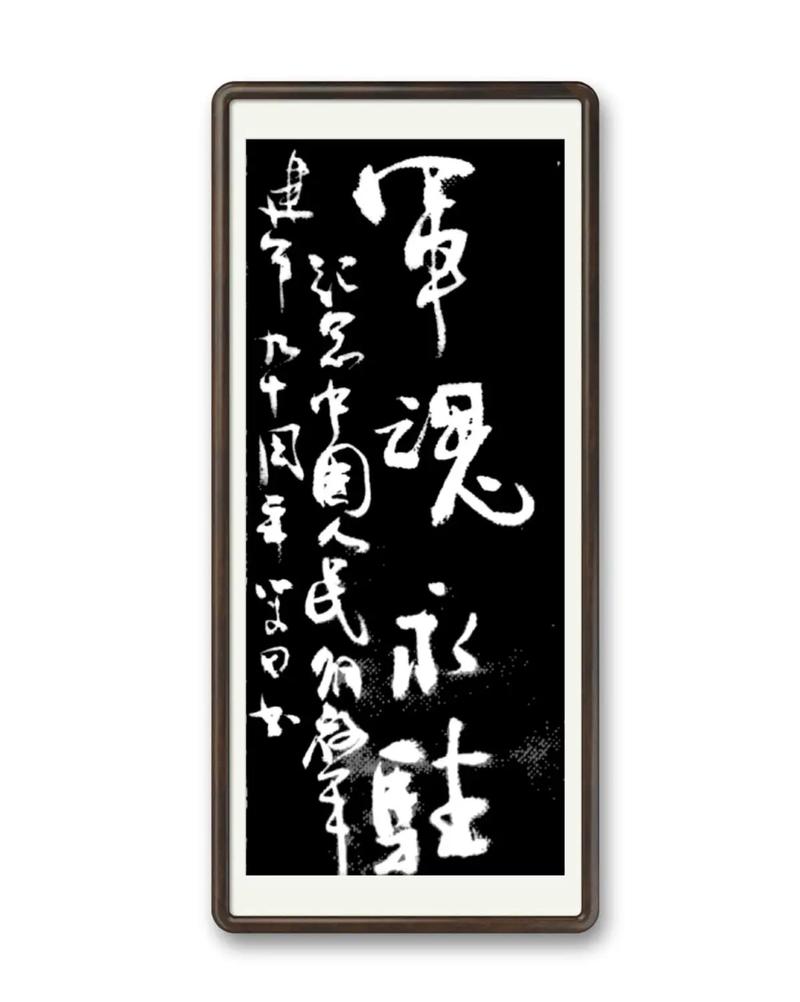 軍魂永駐
記念中國人民解放軍
建军九十周年